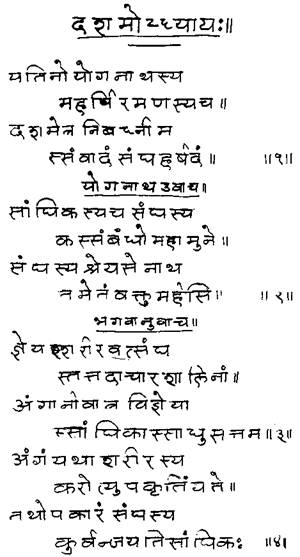 दशमोऽध्यायः॥
यतिनो योगनाथस्य
महर्षिरमणस्य च॥
दशमेत्र निबध्नीम
स्संवादं संघहर्षदं॥ ॥१॥
योगनाथ उवाच॥
सांघिकस्य च संघस्य
कस्संबंधो महामुने॥
संघस्य श्रेयसे नाथ
तमेतं वक्तुमर्हसि॥ ॥२॥
भगवानुवाच॥
ज्ञेयश्शरीरवत्संघ
स्तत्तदाचारशालिनां॥
अंगानीवात्र विज्ञेया
स्सांघिकास्साधुसत्तम॥३॥
अंगं यथा शरीरस्य
करोत्युपकृतिं यते॥
तथोपकारं संघस्य
कुर्वन्जयति सांघिकः ॥४॥